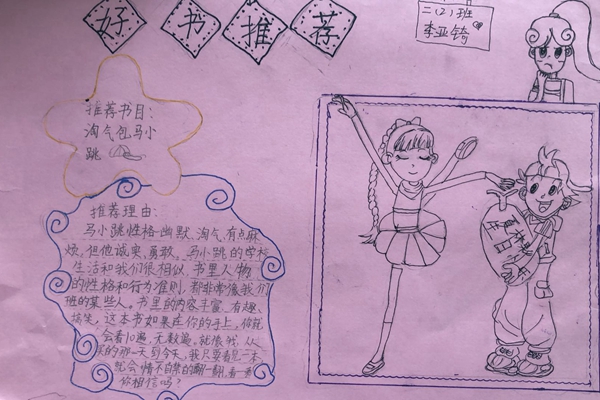 好书推荐
二(2)班
李亚锜
推荐书目：
淘气包马小
跳
推荐理由：
马小跳性格幽默、淘气、有点麻
烦。但他诚实、勇敢。马小跳的学校
生活和我们很相似，书里人物
的性格和行为准则，都非常像我们
班的某些人。书里的内容丰富、有趣、
搞笑，这本书如果在你的手上，你能
会看10遍，无数遍。就像我，从
的那一天到今天，我只要看见一本
就会情不自禁的翻一翻，看一看
你相信吗？